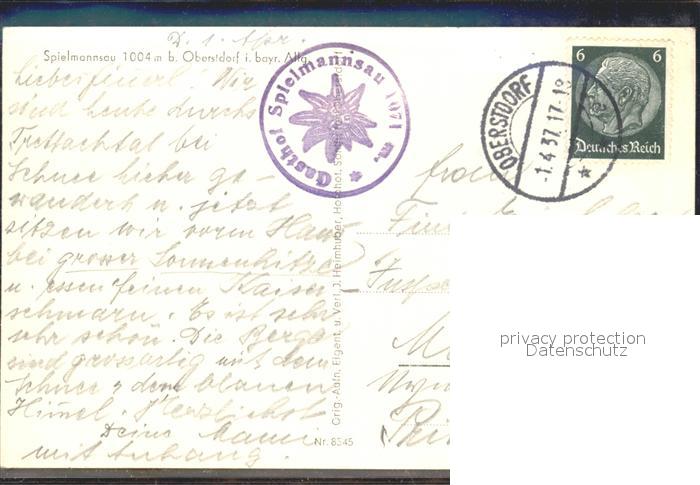 D. 1. Apr.
Spielmannsau 1004 m b. Oberstdorf i. bayr. Allg.
Wir
sind heute durchs
Trettachtal bei
Schnee hieher ge-
wandert u. jetzt
sitzen wir vorm Haus
bei grosser Sonnenhitze
u. essen feinen Kaiser-
schmarn. Es ist sehr
sehr schön. Die Berge
sind grossartig mit dem
Schnee u. dem blauen
Himel. Herzlichst
Deine Mami
mit Anhang.
Gasthof Spielmannsau 1071 m.
Orig.-Aufn. Eigent. u. Verl. J. Heimhuber, Hofphot. Sonthofen-Oberstdorf
Nr. 8545
OBERSTDORF
-1.4.37.17-18
6 6
Deutsches Reich
Frau
privacy protection
Datenschutz